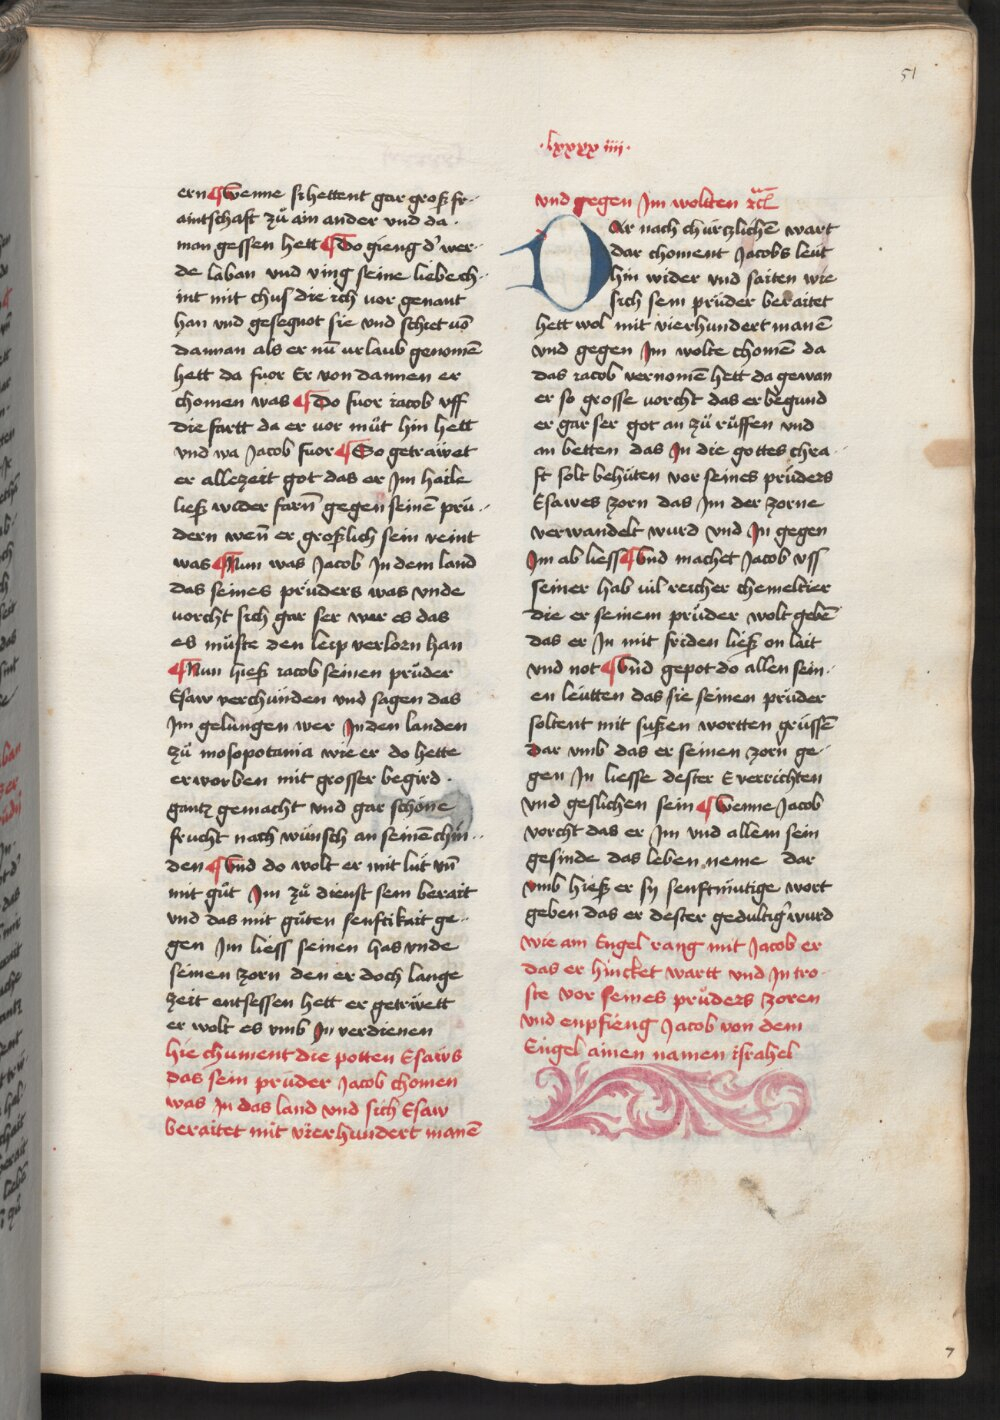 51
·lxxxx iiii·
ern ¶ Wenne si hettent gar groß fr-
aintschaft zů ain ander vnd da·
man gessen hett ¶ Do gieng d' wer-
de laban vnd ving seine liebe ch-
int mit chus die ich vor genant
han vnd gesegnot sie vnd schiet võ
dannan als er nu᷑ urlaub genomẽ
hett da fuor Er von dannen er
chomen was ¶ Do fuor iacob vff
die fartt da er vor můt hin hett
vnd wa Jacob fuor ¶ So getrawet
er allezeit got das er Jm haile
ließ wider farn gegen seinen prü-
dern weñ er großlich sein veint
was ¶ Nun was Jacob Jn dem land
das seines průders was vnde
vorcht sich gar ser war es das
es můste den leip verlorn han
¶ Nun hieß iacob seinen průder
Esaw verchunden vnd sagen das
Jm gelungen wer Jn den landen
zů mosopotania wie er do hette
erworben mit grosser begird·
gantz gemacht vnd gar schöne
frucht nach wunsch an seinẽ chin-
den ¶ Vnd do wolt er mit lut vñ
mit gůt Jm zů dienst sein berait
vnd das mit gůten senftikait ge-
gen Jm liess seinen has vnde
seinen zorn den er doch lange
zeit entsessen hett er getrwett
er wolt es vmb Jn verdienen
hie chument die potten Esaws
das sein průder Jacob chomen
was Jn das land vnd sich Esaw
beraitet mit vierhundert manẽ
vnd gegen Jm wolten
Dar nach churtzlichen wart
dar choment Jacobs leut
hin wider vnd saiten wie
sich sein průder beraitet
hett wol mit vierhundert manẽ
vnd gegen Jm wolte chomẽ da
das iacob vernomẽ hett da gewan
er so grosse vorcht das er begund
er gar ser got an zů růffen vnd
an betten das Jn die gottes chra-
ft solt behüten vor seines průders
Esawes zorn das Jm der zorne
verwandelt wurd vnd Jn gegen
Jm ab liess ¶ Vnd machet Jacob vss
seiner hab vil reicher chemeltier
die er seinem průder wolt gebẽ
das er Jn mit friden ließ on lait
vnd not ¶ Vnd gepot do allen sein-
en leutten das sie seinen průder
soltent mit sußen wortten grüssẽ
dar vmb das er seinen zorn ge-
gen Jn liesse dester E verrichten
vnd geslichen sein ¶ Wenne Jacob
vorcht das er Jm vnd allem sein
gesinde das leben neme dar
vmb hieß er sy senftmutige wort
geben das er dester gedultig' wurd
wie am Engel rang mit Jacob er
das er hincket wartt vnd Jn tro-
ste vor seines průders zoren
vnd enpfieng Jacob von dem
Engel ainen namen israhel
7